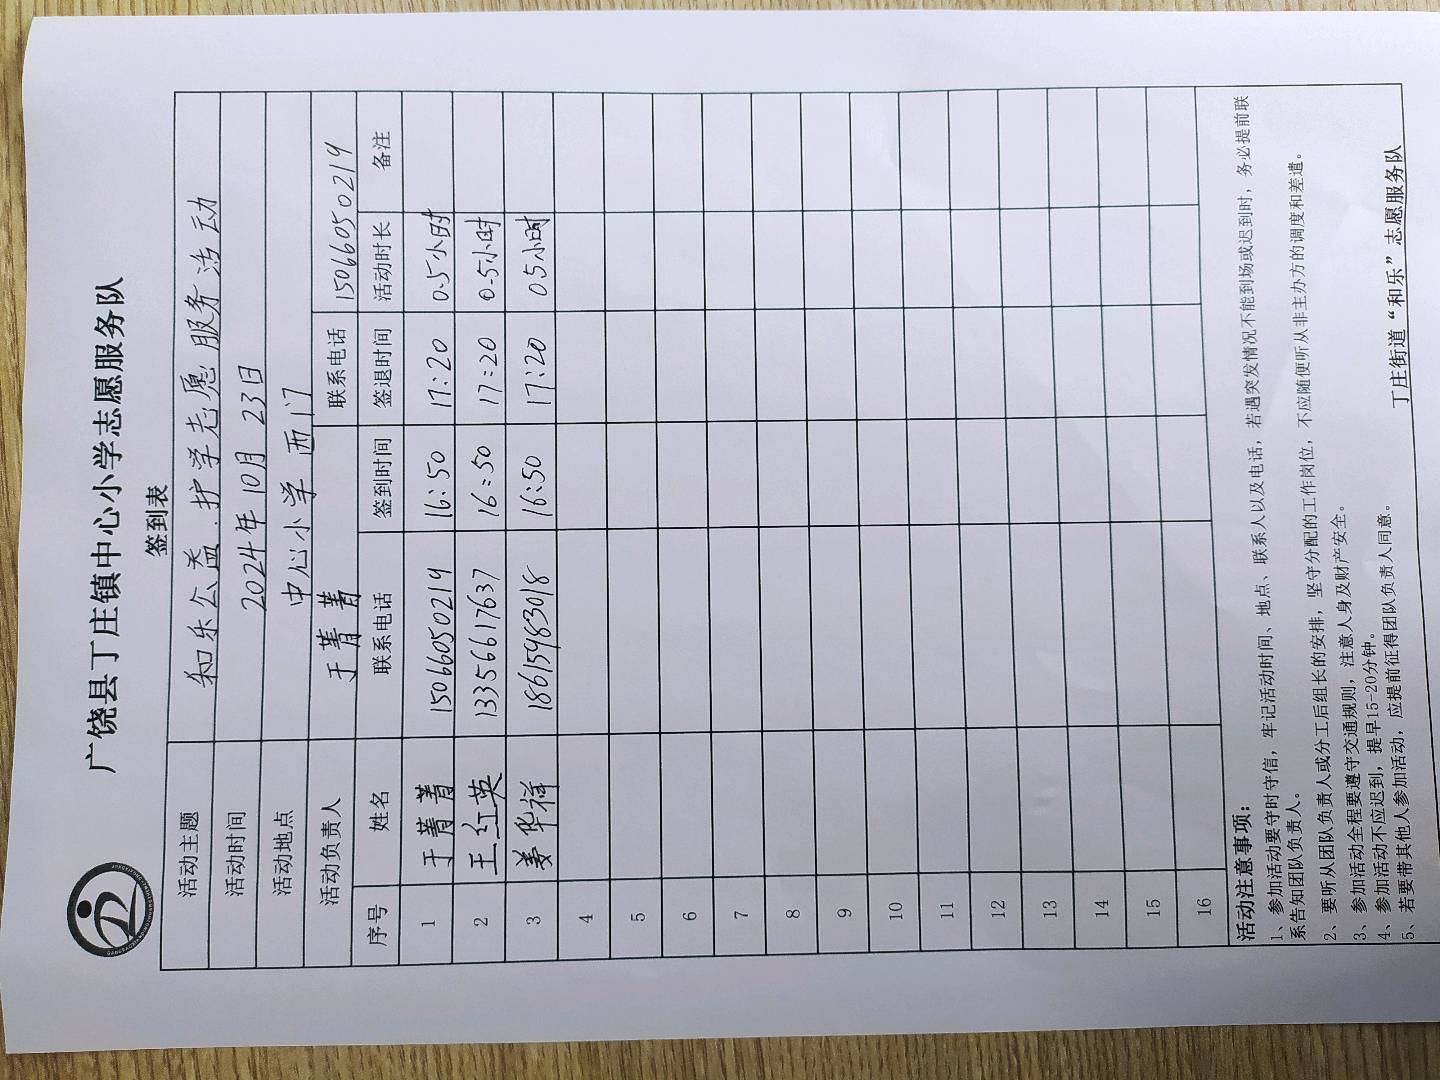 广饶县丁庄镇中心小学志愿服务队
签到表
活动主题 和乐公益.护学志愿服务活动
活动时间 2024年10月23日
活动地点 中心小学西门
活动负责人 于菁菁 联系电话 15066050219
序号 姓名 联系电话 签到时间 签退时间 活动时长 备注
1 于菁菁 15066050219 16:50 17:20 0.5小时
2 王红英 13356617637 16:50 17:20 0.5小时
3 姜华祥 18615983018 16:50 17:20 0.5小时
4
5
6
7
8
9
10
11
12
13
14
15
16
活动注意事项:
1、参加活动要守时守信，牢记活动时间、地点、联系人以及电话，若遇突发情况不能到场或迟到时，务必提前联
系告知团队负责人。
2、要听从团队负责人或分工后组长的安排，坚守分配的工作岗位，不应随便听从非主办方的调度和差遣。
3、参加活动全程要遵守交通规则，注意人身及财产安全。
4、参加活动不应迟到，提早15-20分钟。
5、若要带其他人参加活动，应提前征得团队负责人同意。
丁庄街道“和乐”志愿服务队